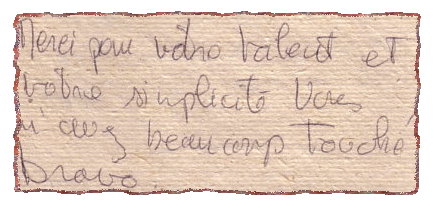 Merci pour votre talent et
votre simplicité Vous
m'avez beaucoup touché
Bravo.